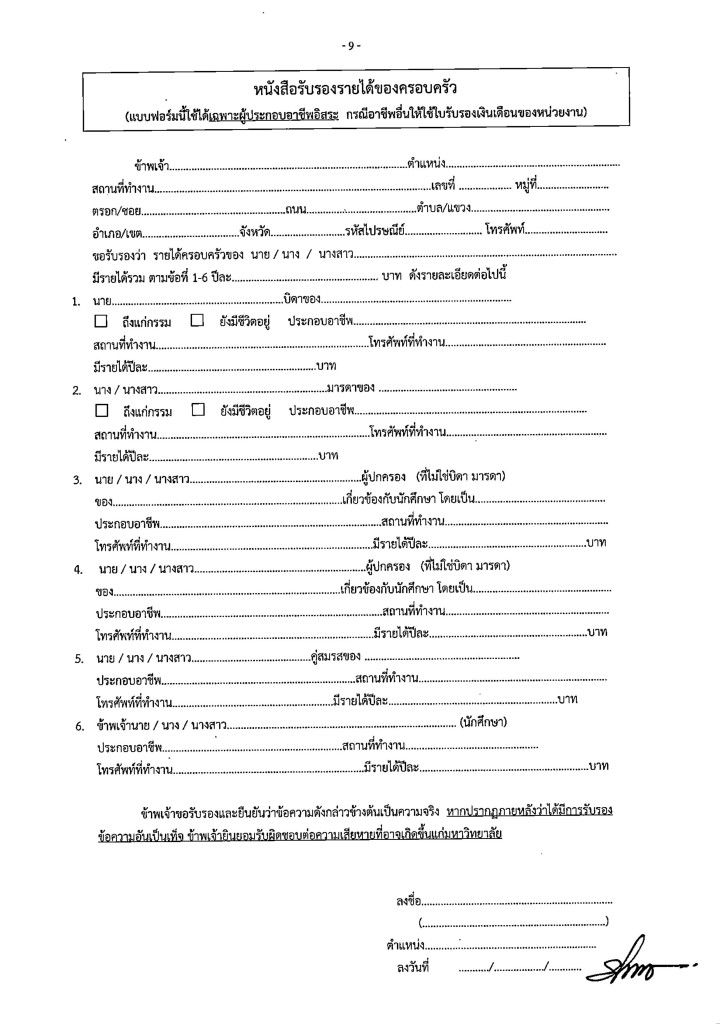 - 9 -
หนังสือรับรองรายได้ของครอบครัว
(แบบฟอร์มนี้ใช้ได้เฉพาะผู้ประกอบอาชีพอิสระ กรณีอาชีพอื่นให้ใช้ใบรับรองเงินเดือนของหน่วยงาน)
ข้าพเจ้า..........ตำแหน่ง..........
สถานที่ทำงาน..........เลขที่ .......... หมู่ที่..........
ตรอก/ซอย..........ถนน..........ตำบล/แขวง..........
อำเภอ/เขต..........จังหวัด..........รหัสไปรษณีย์.......... โทรศัพท์..........
ขอรับรองว่า รายได้ครอบครัวของ นาย / นาง / นางสาว..........
มีรายได้รวม ตามข้อที่ 1-6 ปีละ.......... บาท ดังรายละเอียดต่อไปนี้
1. นาย..........บิดาของ..........
☐ ถึงแก่กรรม ☐ ยังมีชีวิตอยู่ ประกอบอาชีพ..........
สถานที่ทำงาน..........โทรศัพท์ที่ทำงาน..........
มีรายได้ปีละ..........บาท
2. นาง / นางสาว..........มารดาของ ..........
☐ ถึงแก่กรรม ☐ ยังมีชีวิตอยู่ ประกอบอาชีพ..........
สถานที่ทำงาน..........โทรศัพท์ที่ทำงาน..........
มีรายได้ปีละ..........บาท
3. นาย / นาง / นางสาว..........ผู้ปกครอง (ที่ไม่ใช่บิดา มารดา)
ของ..........เกี่ยวข้องกับนักศึกษา โดยเป็น..........
ประกอบอาชีพ..........สถานที่ทำงาน..........
โทรศัพท์ที่ทำงาน..........มีรายได้ปีละ..........บาท
4. นาย / นาง / นางสาว..........ผู้ปกครอง (ที่ไม่ใช่บิดา มารดา)
ของ..........เกี่ยวข้องกับนักศึกษา โดยเป็น..........
ประกอบอาชีพ..........สถานที่ทำงาน..........
โทรศัพท์ที่ทำงาน..........มีรายได้ปีละ..........บาท
5. นาย / นาง / นางสาว..........คู่สมรสของ ..........
ประกอบอาชีพ..........สถานที่ทำงาน..........
โทรศัพท์ที่ทำงาน..........มีรายได้ปีละ..........บาท
6. ข้าพเจ้านาย / นาง / นางสาว.......... (นักศึกษา)
ประกอบอาชีพ..........สถานที่ทำงาน..........
โทรศัพท์ที่ทำงาน..........มีรายได้ปีละ..........บาท
ข้าพเจ้าขอรับรองและยืนยันว่าข้อความดังกล่าวข้างต้นเป็นความจริง หากปรากฏภายหลังว่าได้มีการรับรอง
ข้อความอันเป็นเท็จ ข้าพเจ้ายินยอมรับผิดชอบต่อความเสียหายที่อาจเกิดขึ้นแก่มหาวิทยาลัย
ลงชื่อ..........
(..........)
ตำแหน่ง..........
ลงวันที่ ........../........../..........